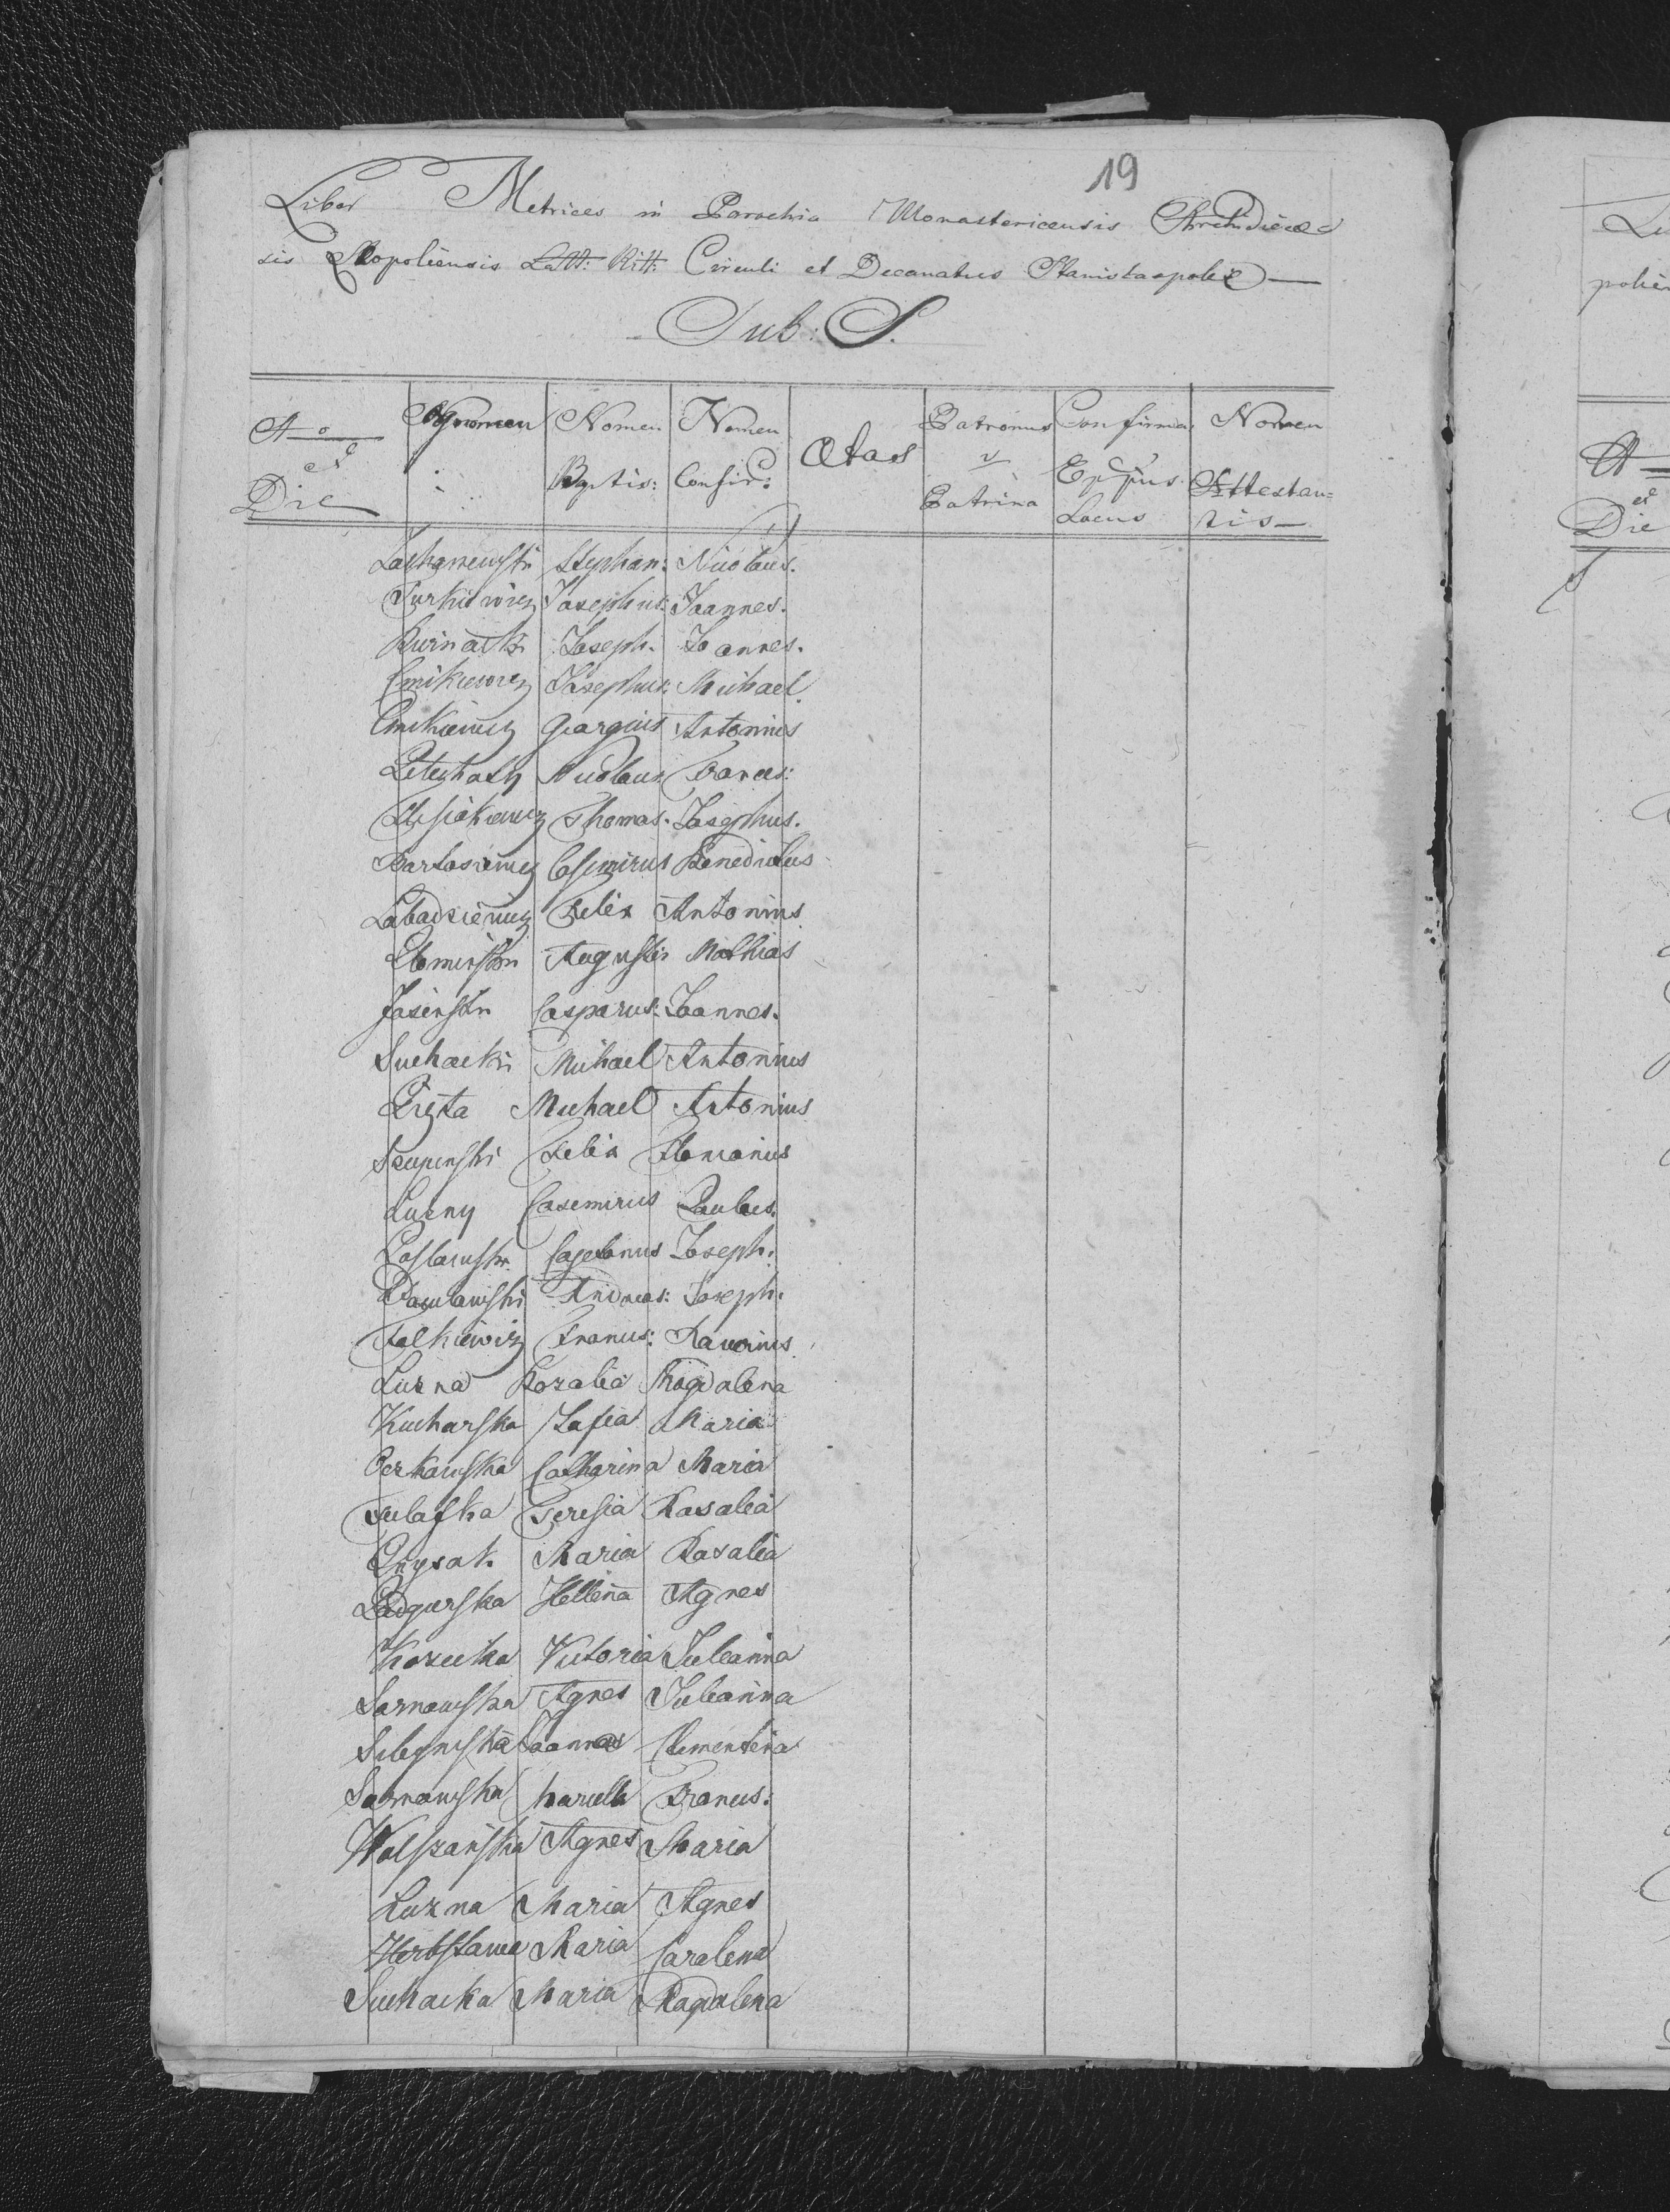 19
Liber Metrices in Parochia Monastericensis Archidiece
sis Leopoliensis Latt: Ritt: Circuli et Decanatus Stanislaopolis
Sub: S.
Ao et Die Cognomen Nomen Baptis: Nomen Confir: Etas Patronus v Patrina Confirma Eppus Locus Nomen Attestan=tis
Stephan: Nicolaus.
Turkiewicz Josephus: Joannes.
Joseph. Joannes.
Cmikiewicz Josephus: Michael
Cmikiewicz Georgius Antonius
Nicolaus Francis:
Thomas. Josephus.
Bartosiewicz Casimirus Benedictus
Labadziewicz Felix Antonius
Augustin Mathias
Jasinski Casparus: Joannes.
Suchacki Michael Antonius
Pięta Michael Antonius
Felix Florianus
Luzny Casemirus Paulus.
Cajetanus Joseph.
Andreas: Joseph.
Falkiewicz Francis: Xawerius
Luzna Rozalia Magdalena
Kucharska Zofia Maria
Catharina Maria
Teresia Rosalia
Maria Rosalia
Padgurska Hellena Agnes
Victoria Julianna
Sarnawska Agnes Julianna
Joannes Clementina
Sarnawska Francis:
Wolszanska Agnes Maria
Luzna Maria Agnes
Maria Carolena
Suchacka Maria Magdalena